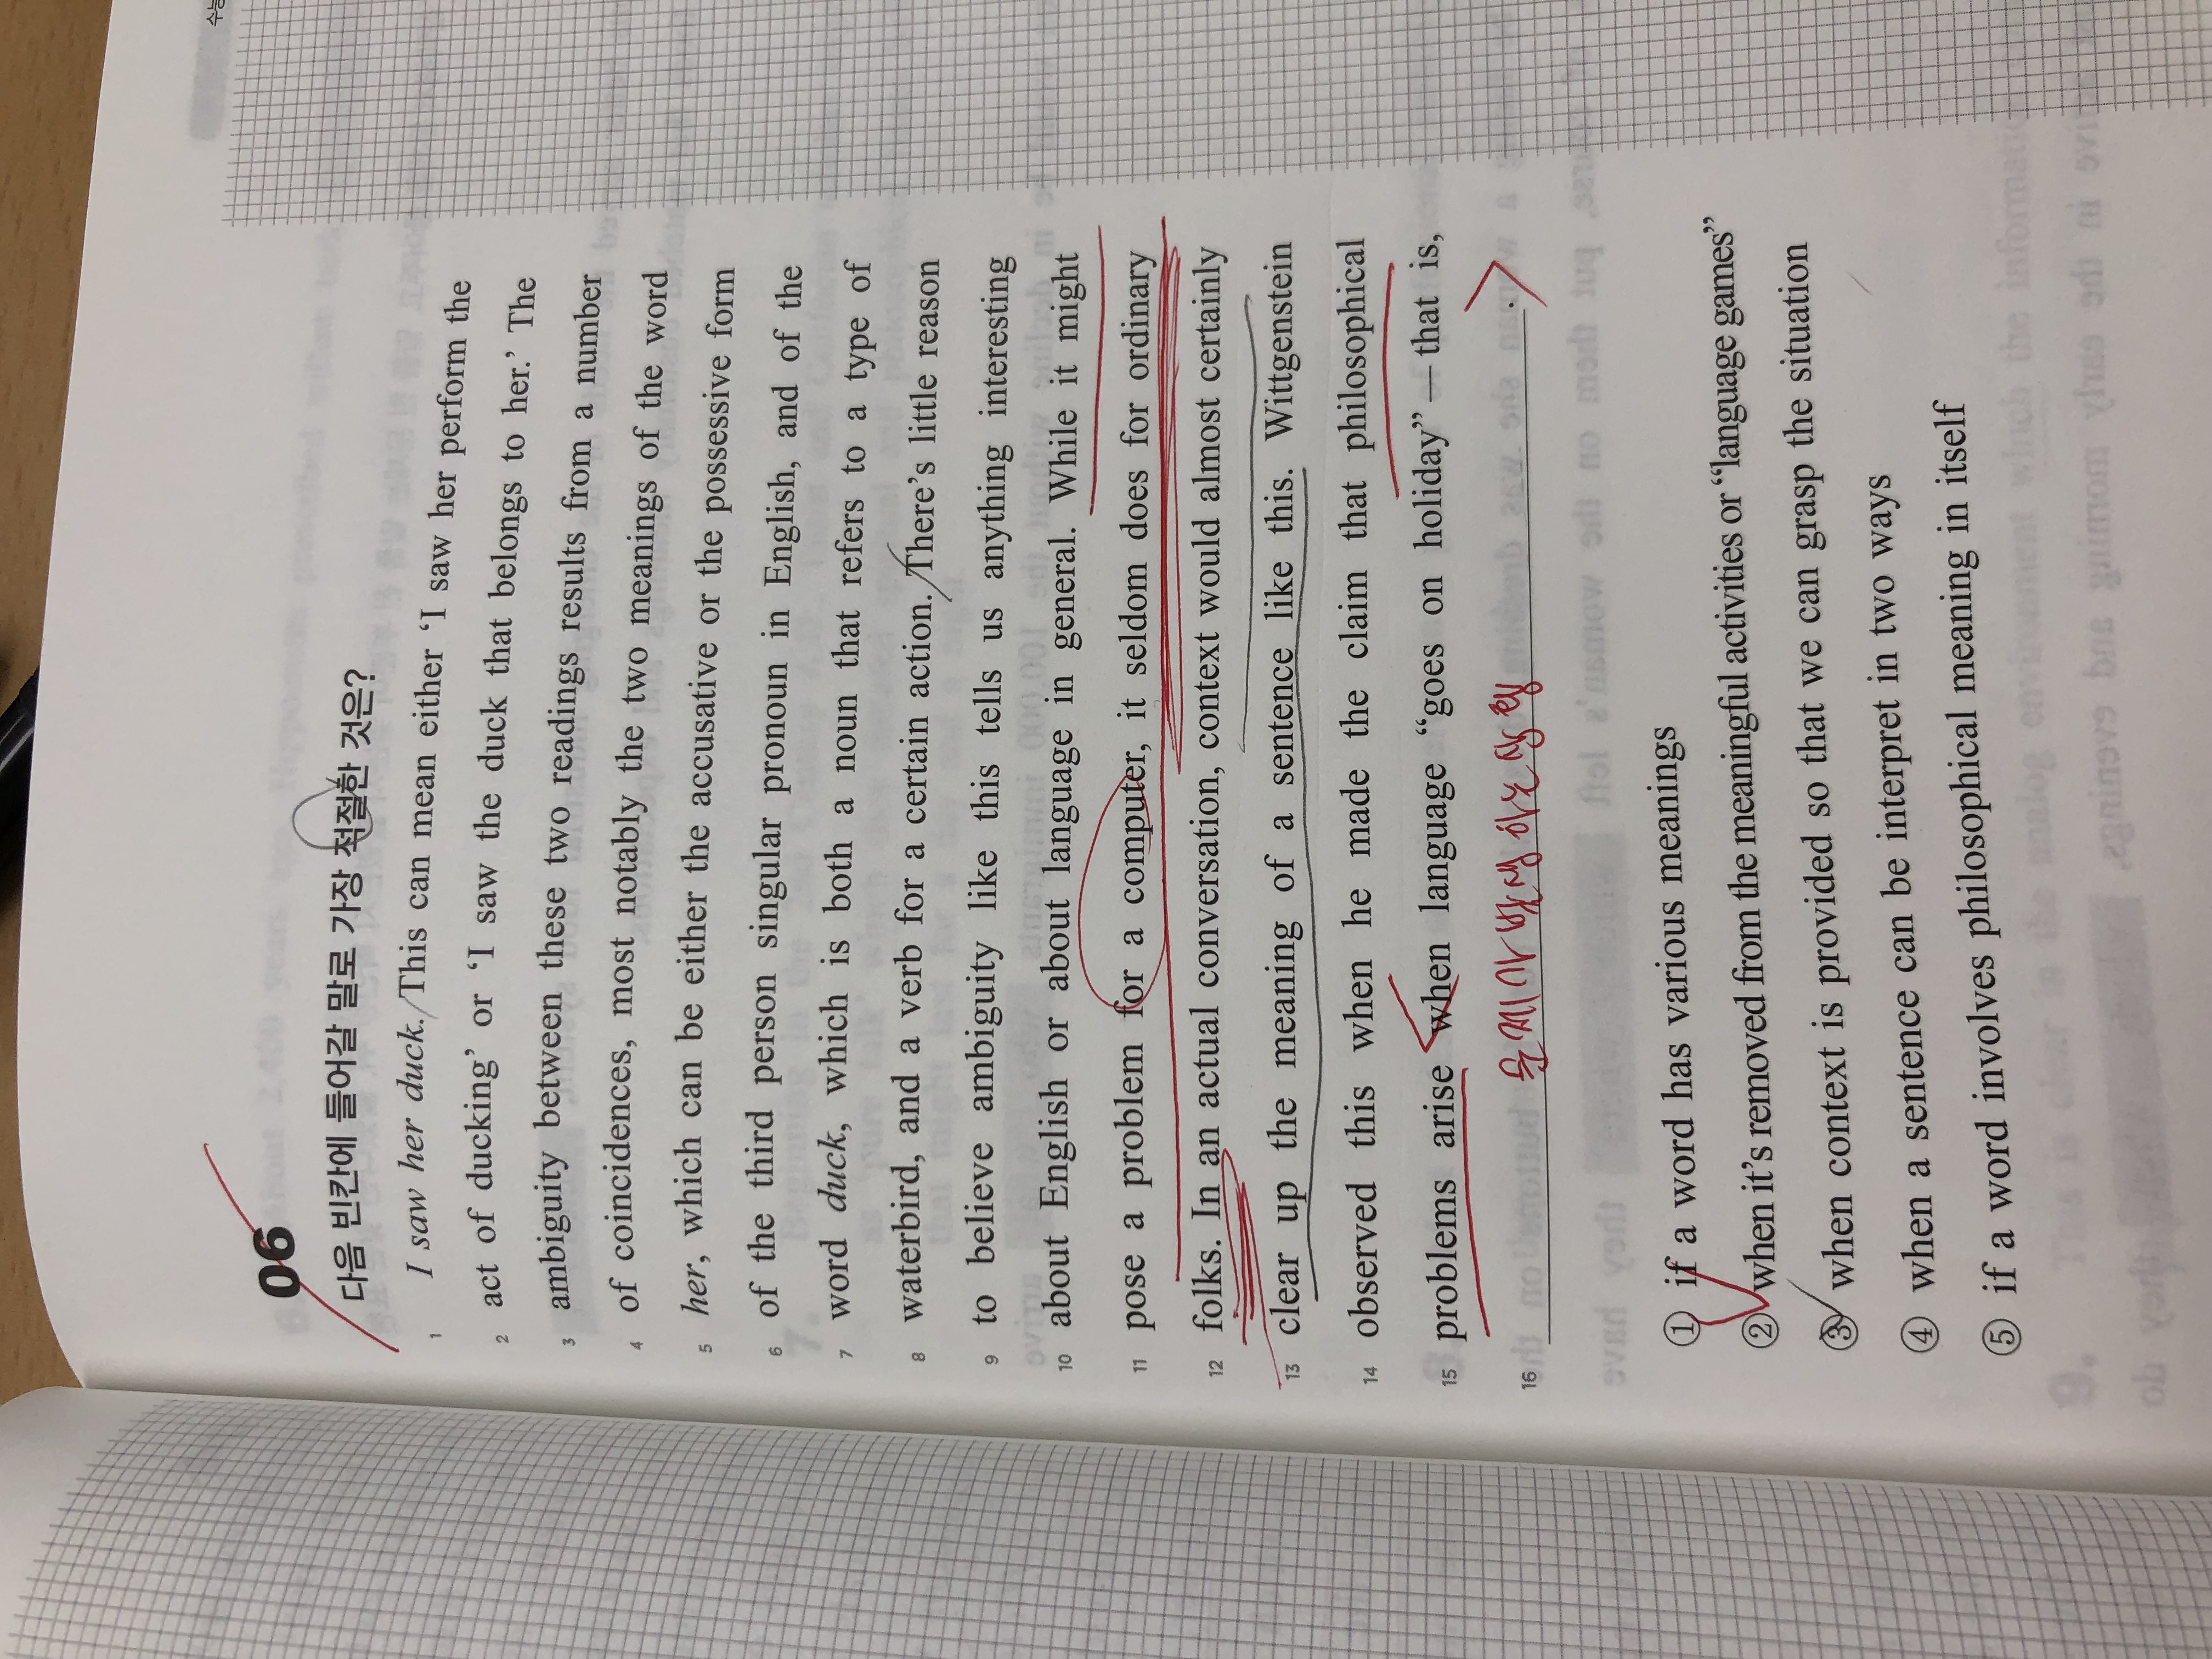 수능
06
다음 빈칸에 들어갈 말로 가장 적절한 것은?
1 I saw her duck. This can mean either ‘I saw her perform the
2 act of ducking’ or ‘I saw the duck that belongs to her.’ The
3 ambiguity between these two readings results from a number
4 of coincidences, most notably the two meanings of the word
5 her, which can be either the accusative or the possessive form
6 of the third person singular pronoun in English, and of the
7 word duck, which is both a noun that refers to a type of
8 waterbird, and a verb for a certain action. There’s little reason
9 to believe ambiguity like this tells us anything interesting
10 about English or about language in general. While it might
11 pose a problem for a computer, it seldom does for ordinary
12 folks. In an actual conversation, context would almost certainly
13 clear up the meaning of a sentence like this. Wittgenstein
14 observed this when he made the claim that philosophical
15 problems arise when language “goes on holiday” — that is,
16 문제가 발생하는 상황 .
① if a word has various meanings
② when it’s removed from the meaningful activities or “language games”
③ when context is provided so that we can grasp the situation
④ when a sentence can be interpret in two ways
⑤ if a word involves philosophical meaning in itself